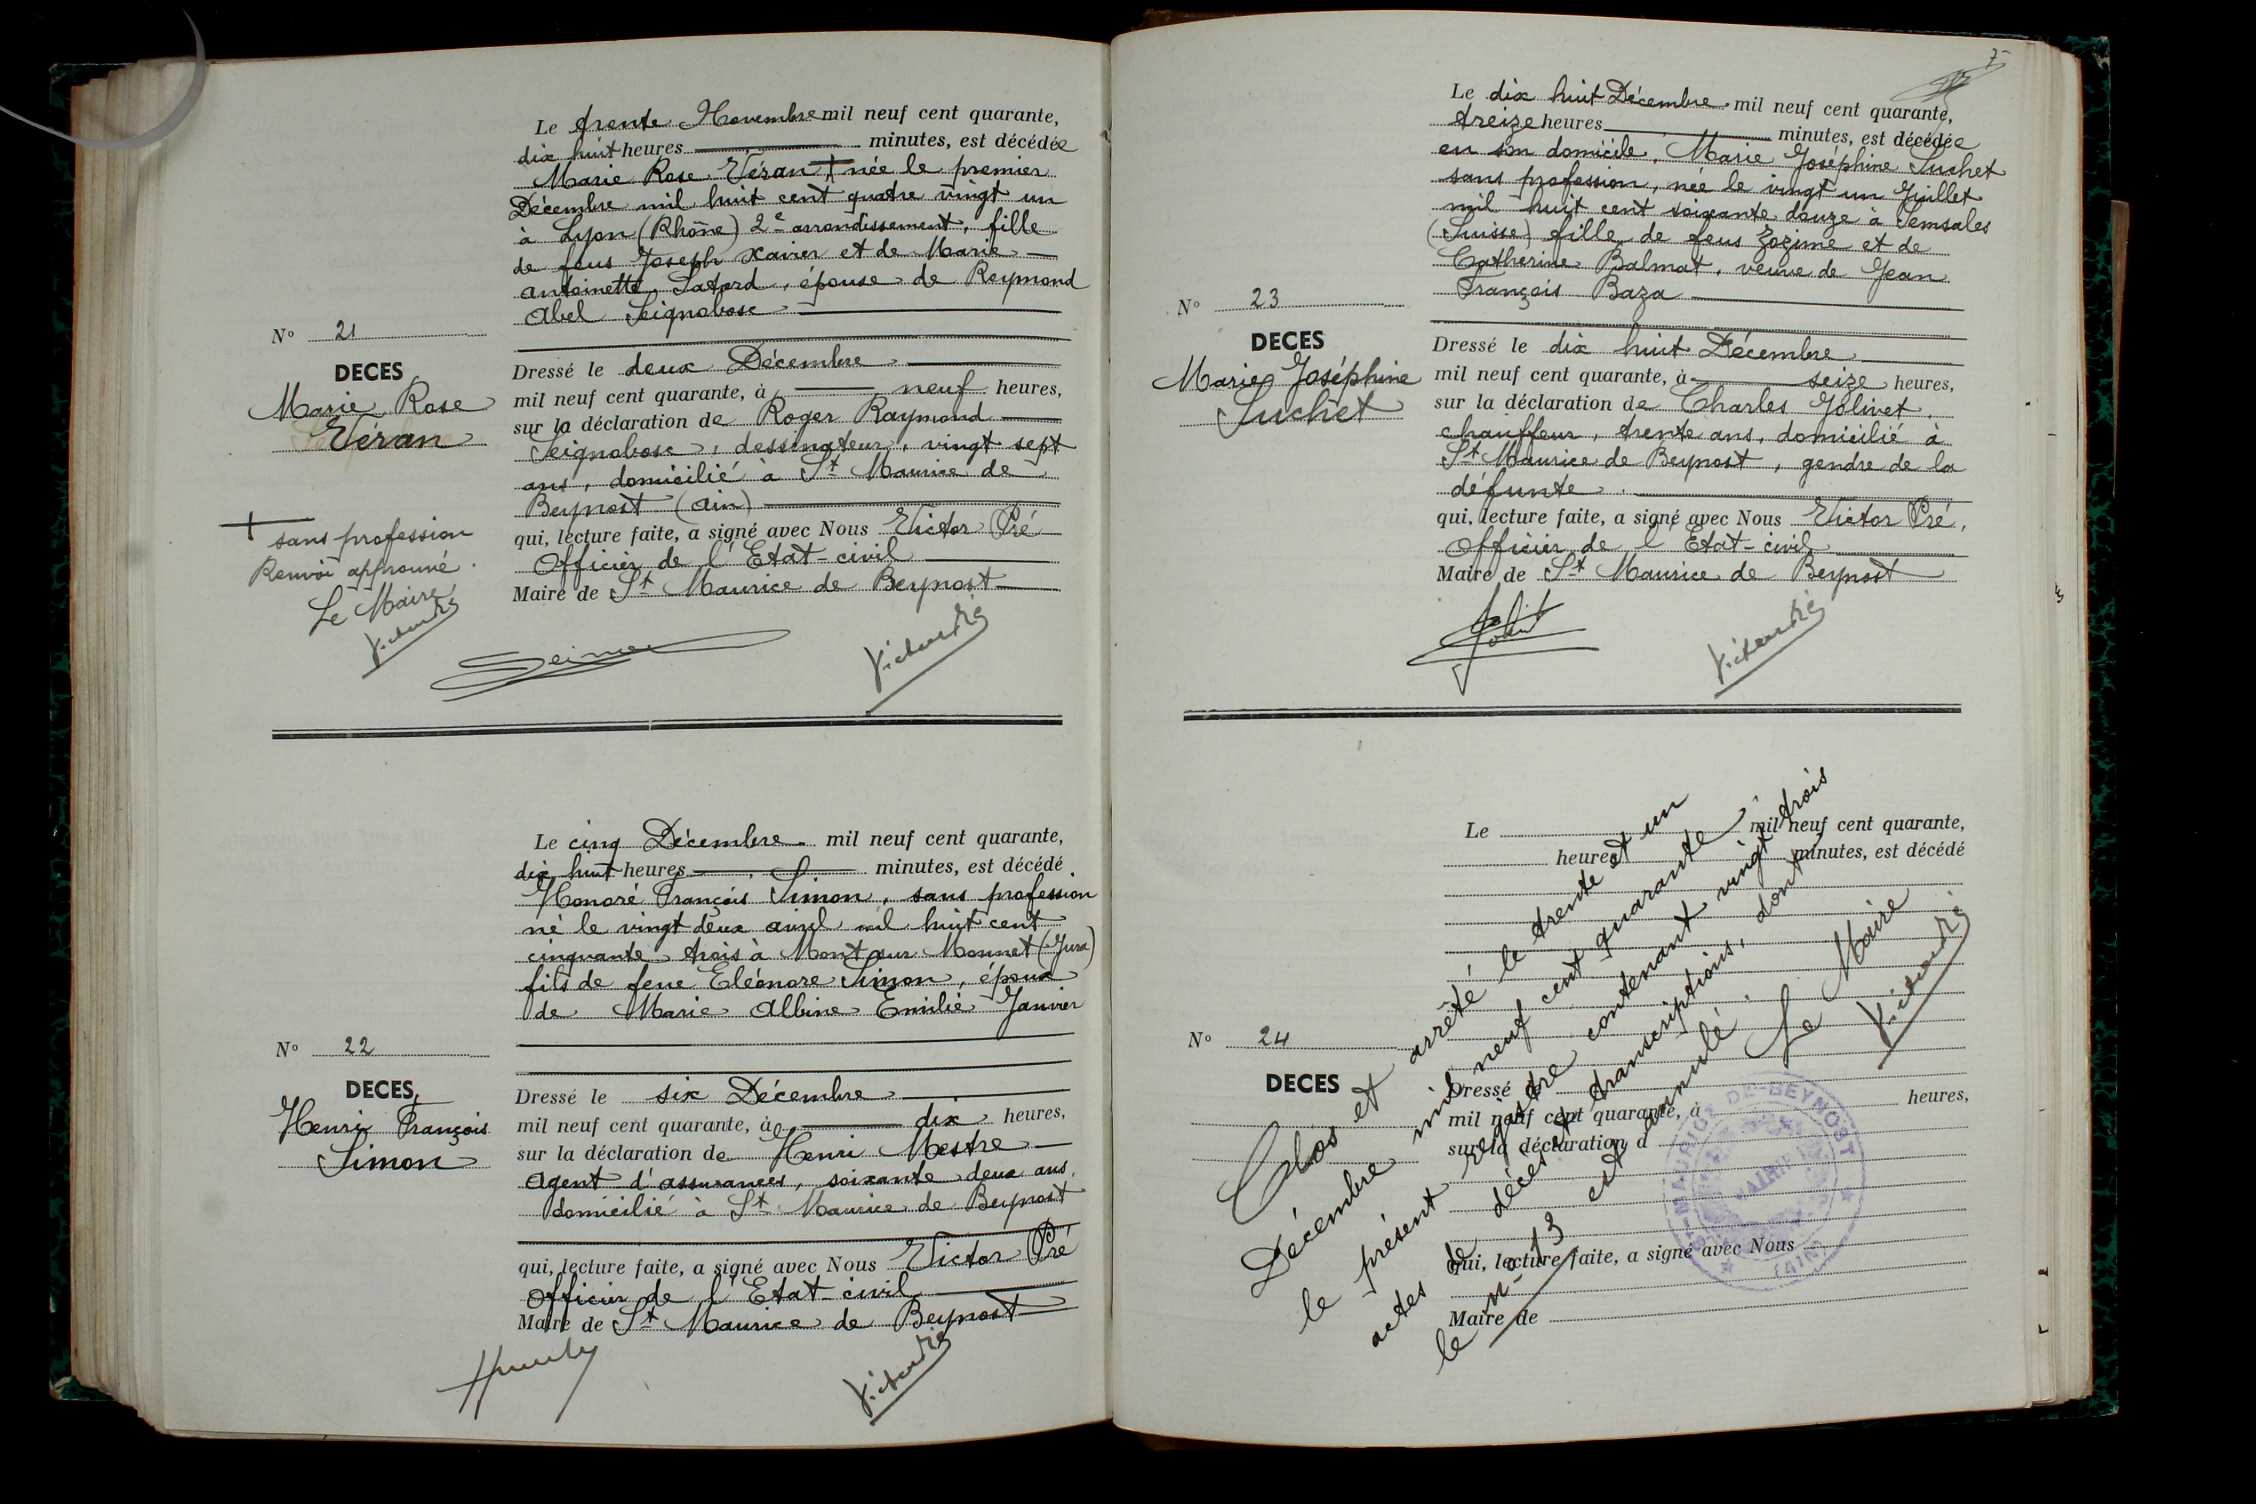 Le trente Novembre mil neuf cent quarante,
dix huit heures minutes, est décédée
Marie Rose Véran + née le premier
Décembre mil huit cent quatre vingt un
à Lyon (Rhône) 2e arrondissement, fille
de feus Joseph Xavier et de Marie
Antoinette Satord, épouse de Reymond
Abel Seignobosc
N° 21
DECES
Marie Rose
Véran
Dressé le deux Décembre
mil neuf cent quarante, à neuf heures,
sur la déclaration de Roger Raymond
Seignobosc, dessinateur, vingt sept
ans, domicilié à St Maurice de
Beynost (Ain)
qui, lecture faite, a signé avec Nous Victor Pré
Officier de l'Etat-civil
Maire de St Maurice de Beynost
+ sans profession
Renvoi approuvé.
Le Maire
Victor Pré
Victor Pré
Le cinq Décembre mil neuf cent quarante,
dix huit heures minutes, est décédé
Honoré François Simon, sans profession
né le vingt deux avril mil huit cent
cinquante trois à Mont sur Monnet (Jura)
fils de feue Eléonore Simon, époux
de Marie Albine Emilie Janvier
N° 22
DECES
Henri François
Simon
Dressé le six Décembre
mil neuf cent quarante, à dix heures,
sur la déclaration de Henri Mestre
Agent d'assurances, soixante deux ans,
domicilié à St Maurice de Beynost
qui, lecture faite, a signé avec Nous Victor Pré
Officier de l'Etat-civil
Maire de St Maurice de Beynost
Victor Pré
7
Le dix huit Décembre mil neuf cent quarante,
treize heures minutes, est décédée
en son domicile, Marie Joséphine Suchet
sans profession, née le vingt un Juillet
mil huit cent soixante douze à Semsales
(Suisse) fille de feus Zozime et de
Catherine Balmat, veuve de Jean
François Baza
N° 23
DECES
Marie Joséphine
Suchet
Dressé le dix huit Décembre
mil neuf cent quarante, à seize heures,
sur la déclaration de Charles Jolivet,
chauffeur, trente ans, domicilié à
St Maurice de Beynost, gendre de la
défunte.
qui, lecture faite, a signé avec Nous Victor Pré,
Officier de l'Etat-civil
Maire de St Maurice de Beynost
Victor Pré
Le mil neuf cent quarante,
heures minutes, est décédé
N° 24
DECES
Dressé le
mil neuf cent quarante, à heures,
sur la déclaration d
qui, lecture faite, a signé avec Nous
Maire de
Clos et arrêté le trente et un
Décembre mil neuf cent quarante
le présent registre contenant vingt trois
actes de décès et transcriptions, dont
le n° 13 est annulé.
Le Maire
Victor Pré
ST-MAURICE DE BEYNOST
MAIRIE
(AIN)